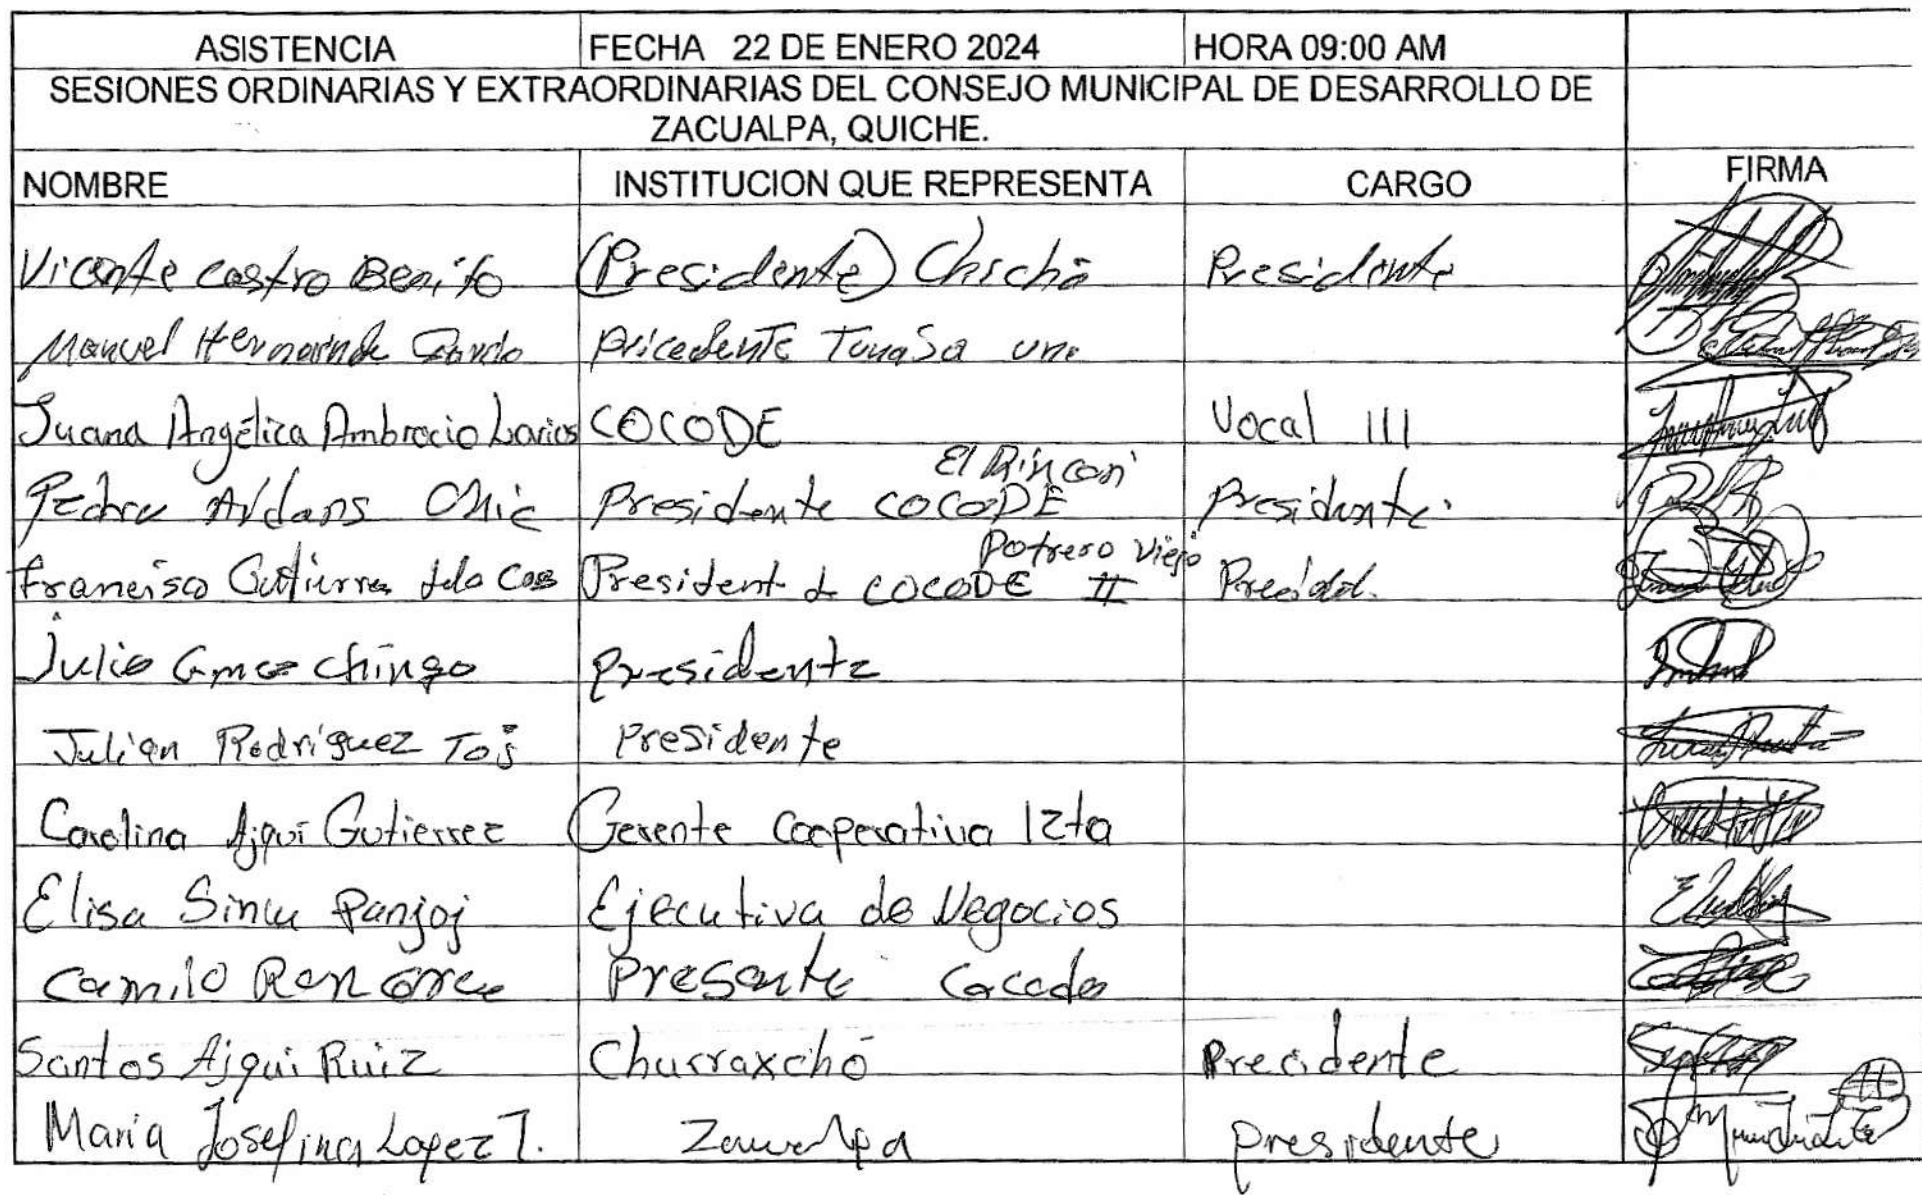 ASISTENCIA FECHA 22 DE ENERO 2024 HORA 09:00 AM
SESIONES ORDINARIAS Y EXTRAORDINARIAS DEL CONSEJO MUNICIPAL DE DESARROLLO DE
ZACUALPA, QUICHE.
NOMBRE INSTITUCION QUE REPRESENTA CARGO FIRMA
Vicente Castro Benito (Presidente) Chichó Presidente
Manuel Hernande pricedente TunaSa uno
Juana Angélica Ambrocio Larios COCODE Vocal III
El Rincon
Pedro Chic Presidente COCODE Presidente
Potrero Viejo
Francisco Gutierrez President d COCODE II
Julio Chingo presidente
Julian Rodríguez Toj Presidente
Carolina Ajquí Gutierrez Gerente Cooperativa Izta
Elisa Sincu Panjoj Ejecutiva de Negocios
Camilo Ren Presente
Santos Ajqui Ruiz Churraxchó Precidente
Maria Josefina Lopez T. presidente